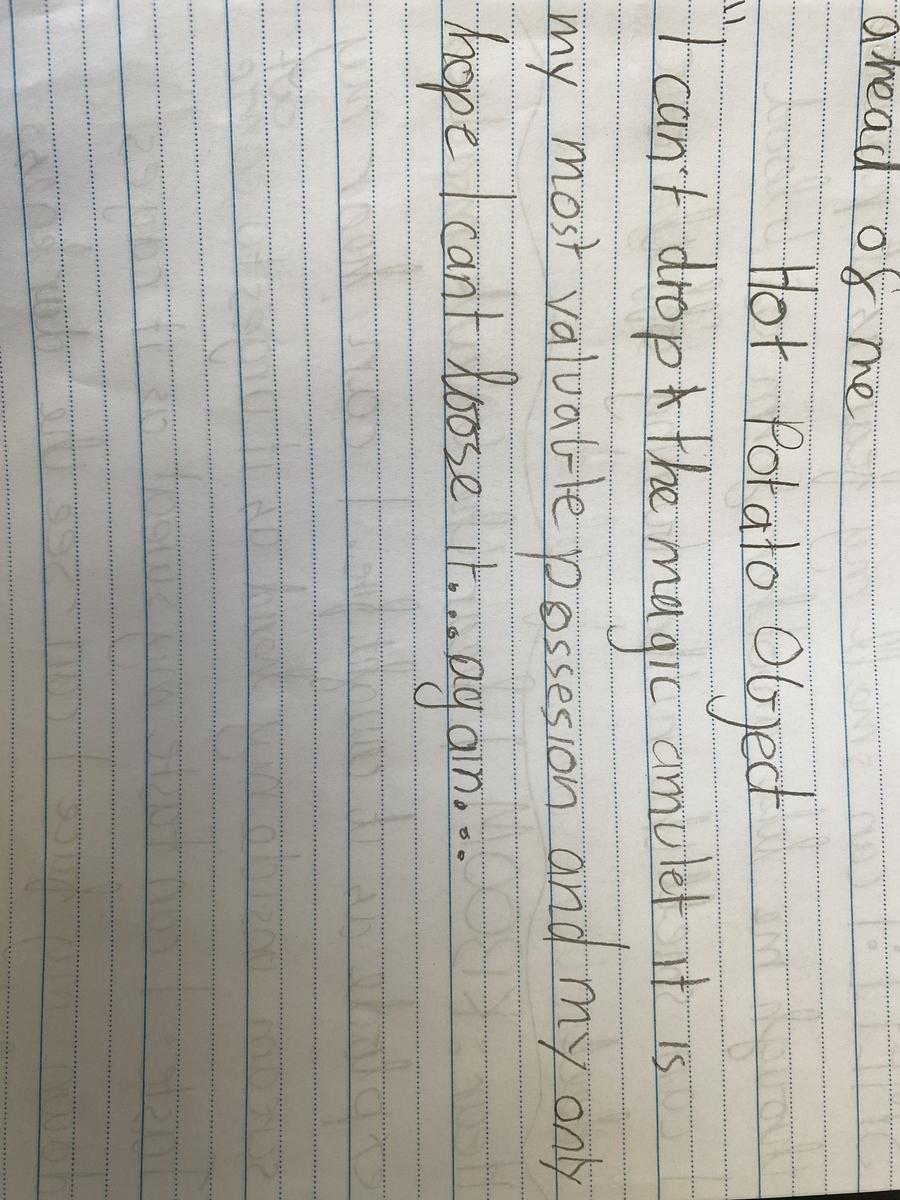 ahead of me
Hot Potato Object
"I can't drop the magic amulet it is
my most valuable possesion and my only
hope I cant loose it...again...